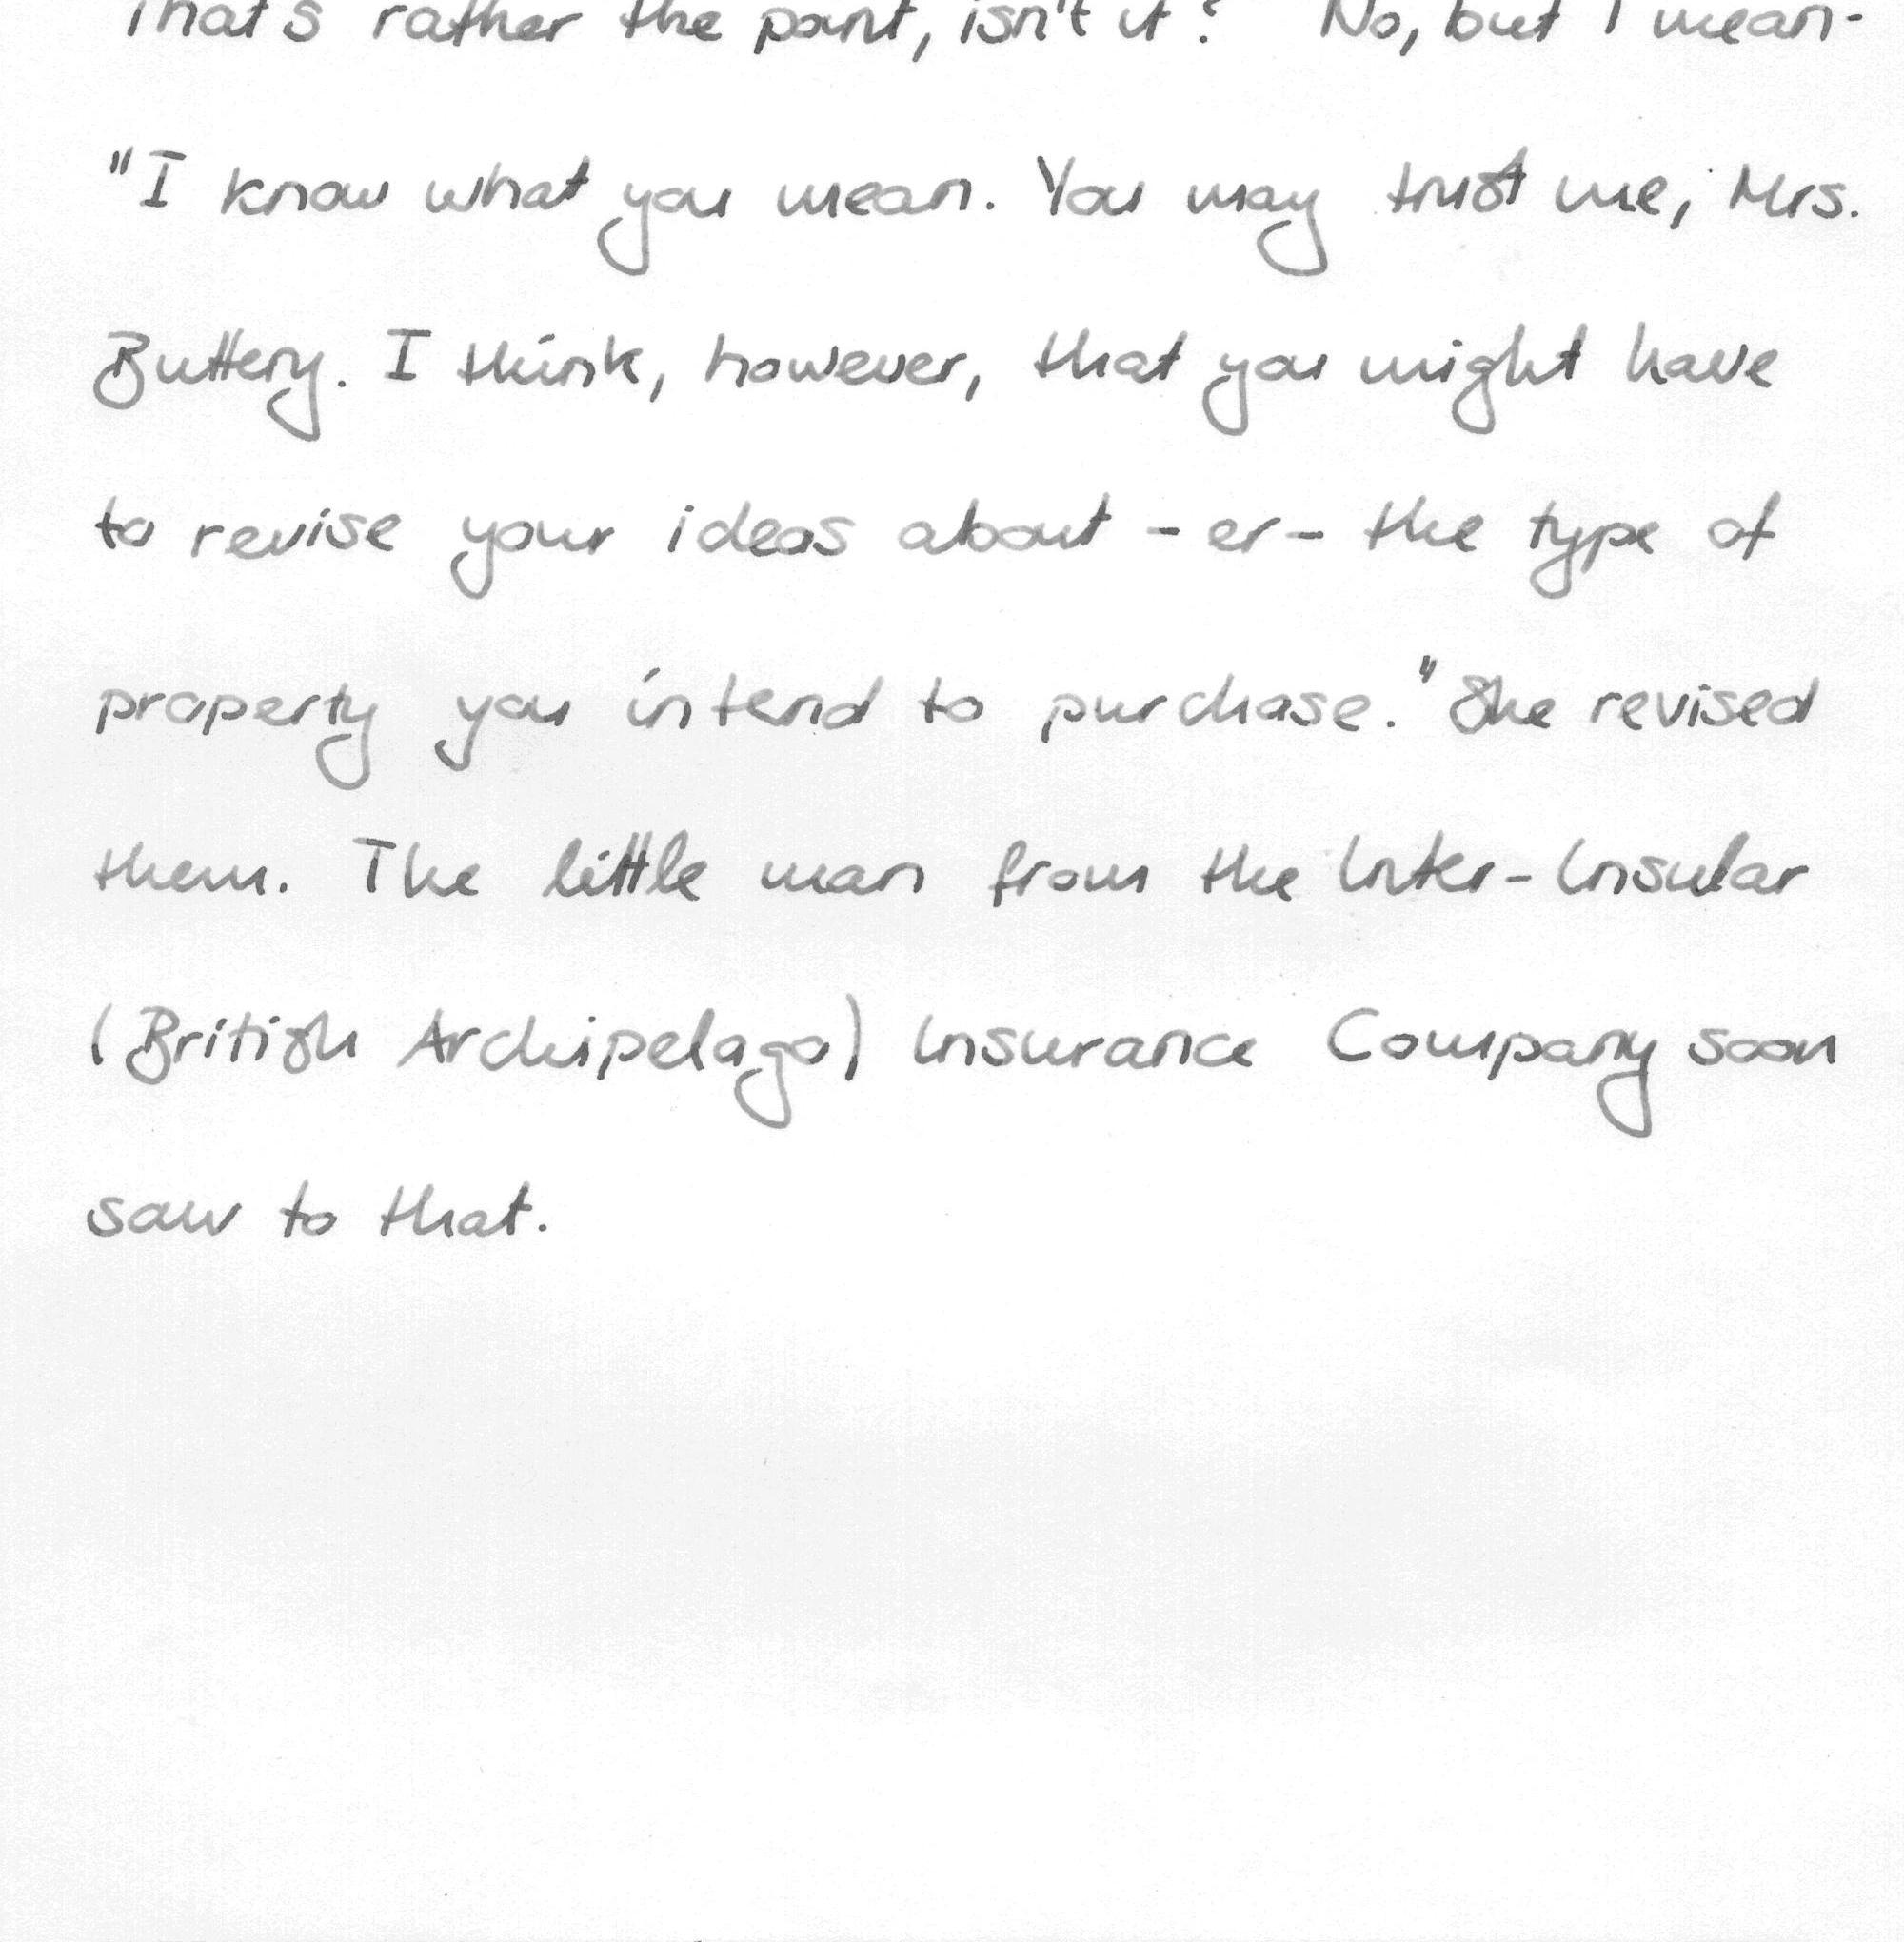 That's rather the point, isn't it? No, but I mean-
"I know what you mean. You may trust me, Mrs.
Buttery. I think, however, that you might have
to revise your ideas about - er - the type of
property you intend to purchase." She revised
them. The little man from the Inter-Insular
(British Archipelago) Insurance Company soon
saw to that.